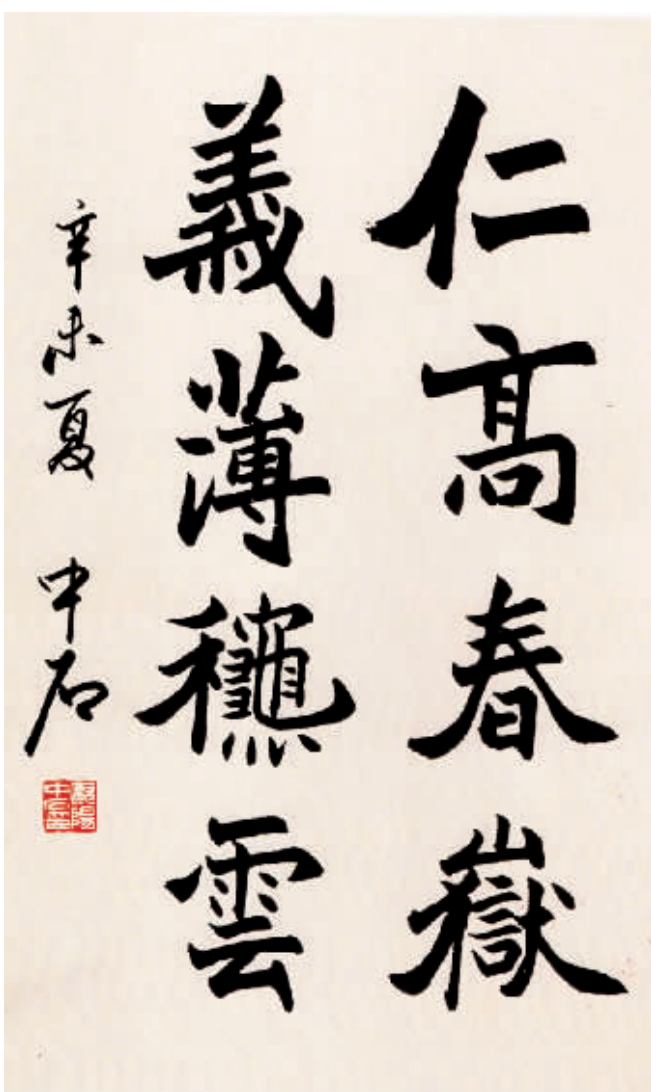 仁髙春嶽
義薄龝雲
辛未夏 中石
歐陽中石璽